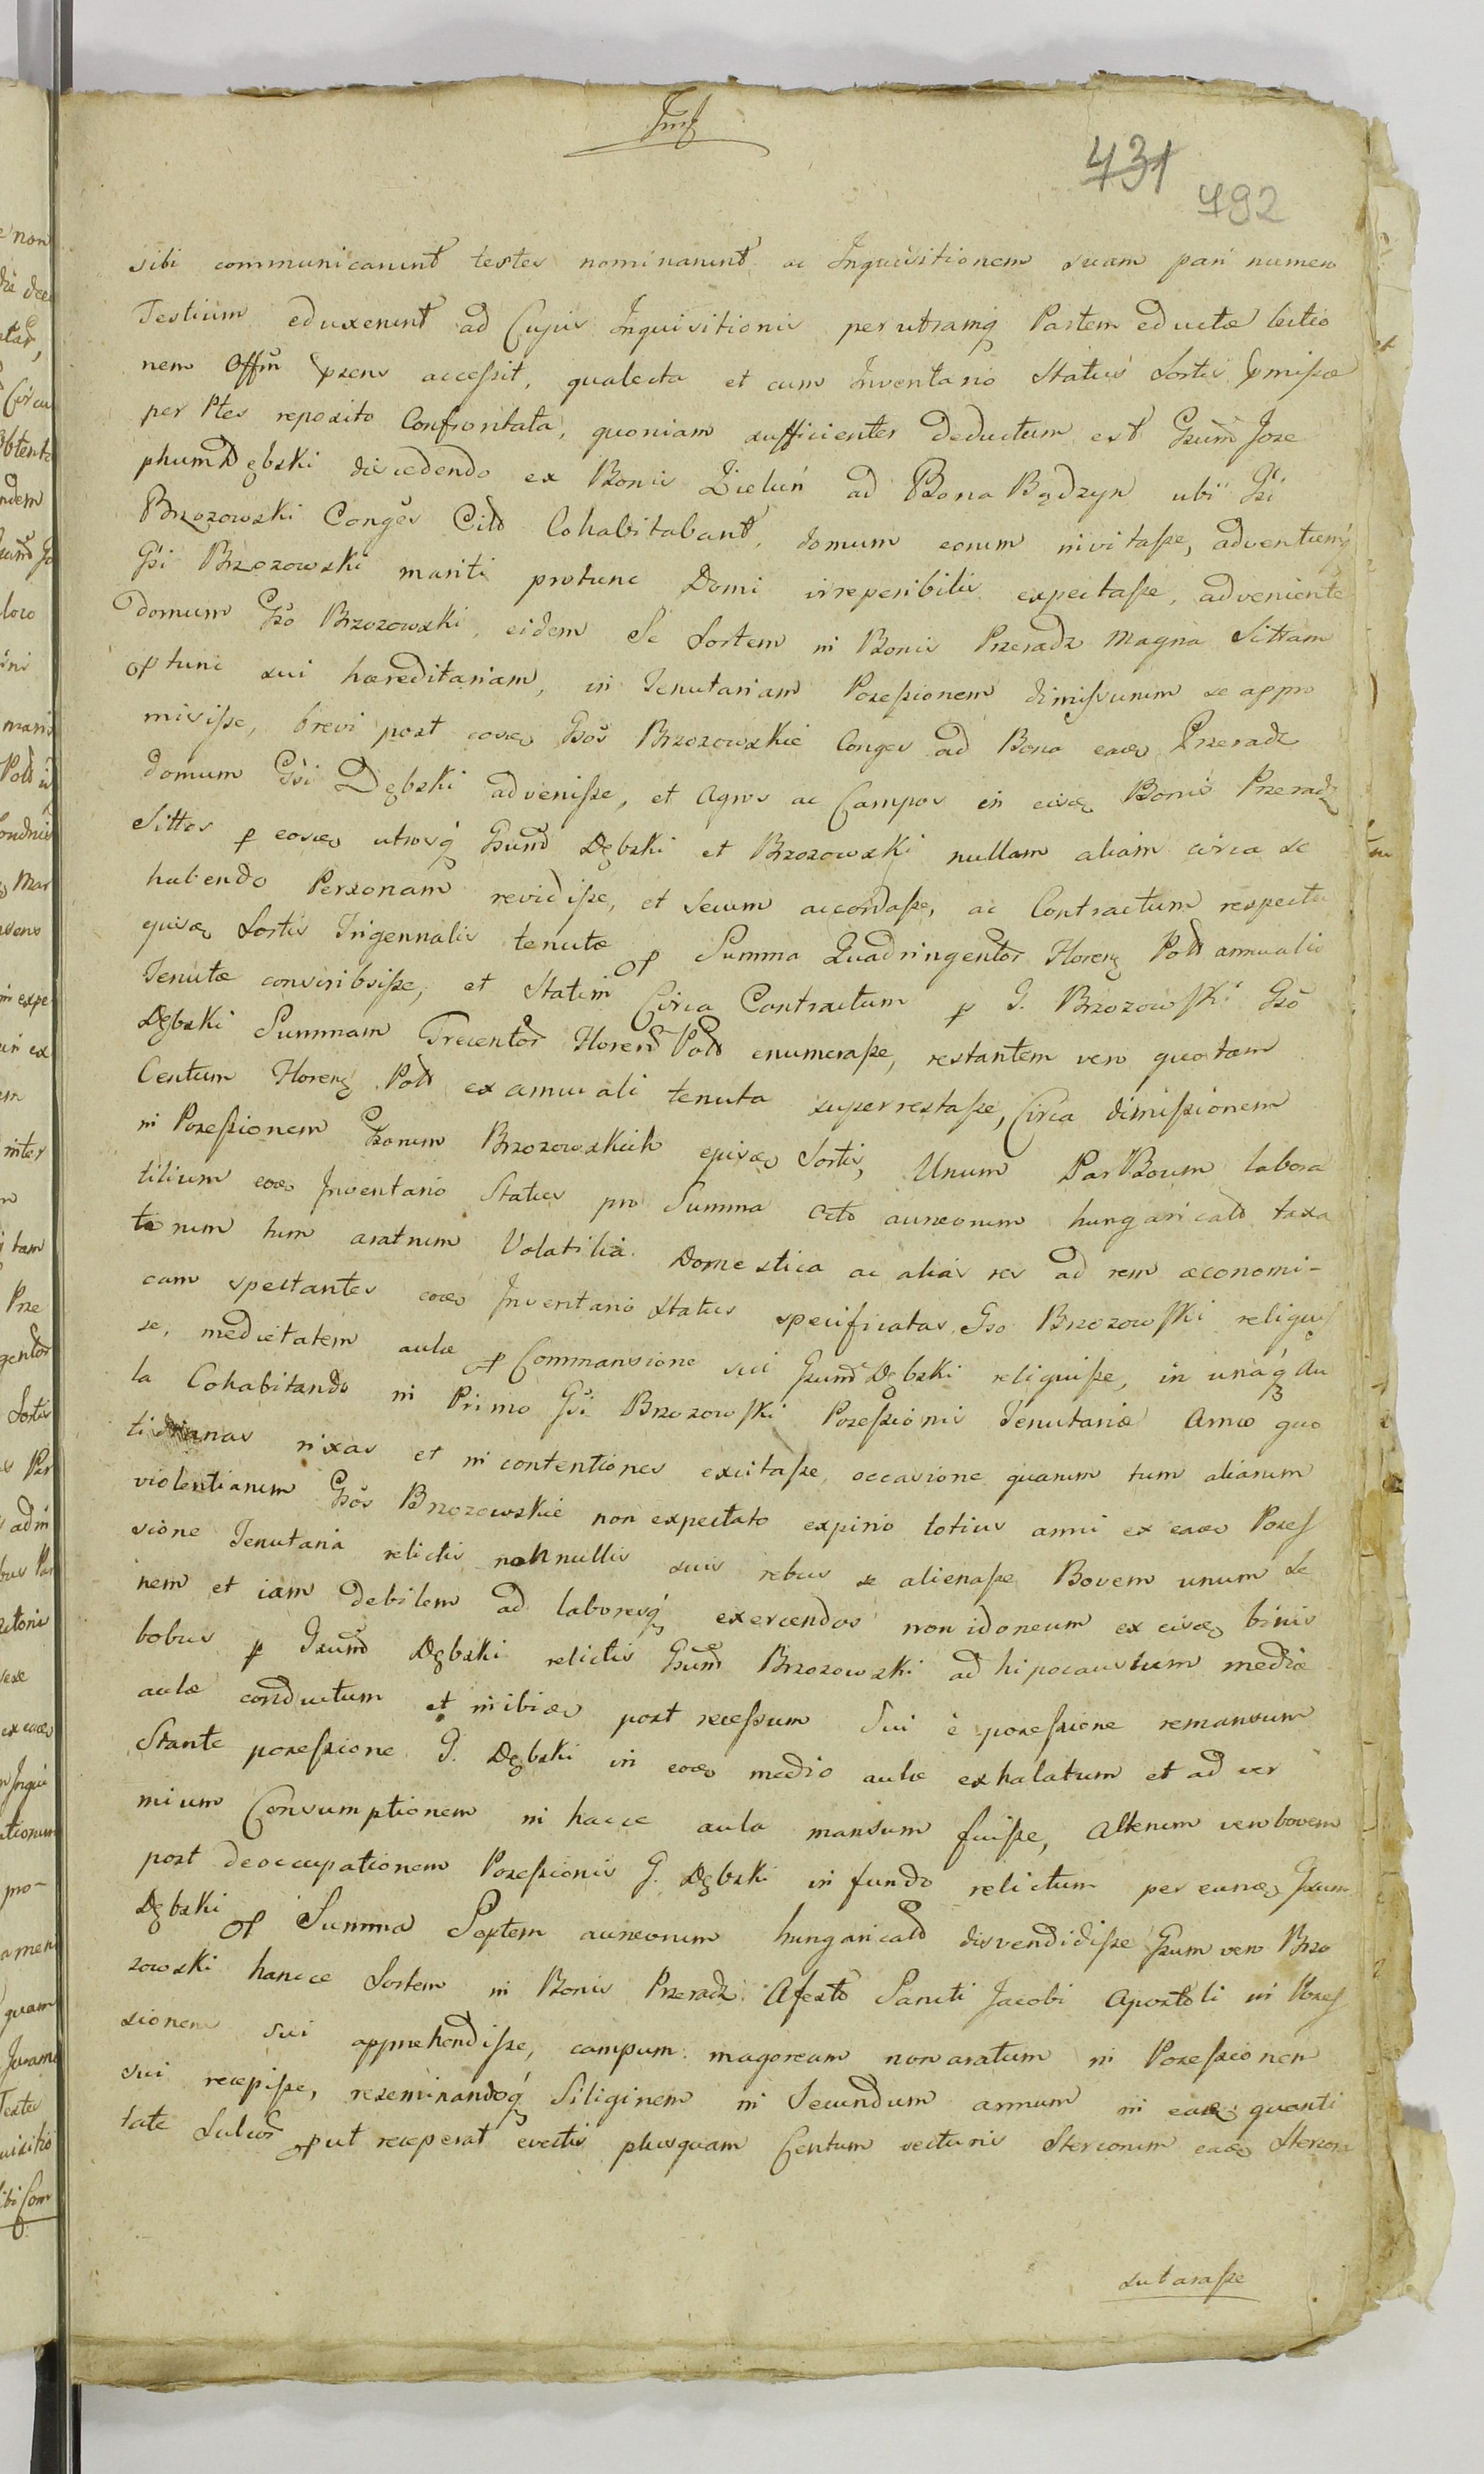 431
492
sibi communicarunt testes nominarunt ac Inquisitionem suam pari numero
Testium eduxerunt ad Cujus Inquisitionis per utramq Partem eductæ lectio
nem Offm pzens accessit, qualecta et cum Inventario Status Sortis pmissæ
per Ptes reposito Confrontata, quoniam sufficienter deductum est Gsum Jose
phum Dębski discedendo ex Bonis Zieluń ad Bona Bądzyn ubi Gsi
Brzozowski Conges Cild Cohabitabant, domum eorum invitasse, adventumq
Gsi Brzozowski mariti protunc Domi irreperibilis expectasse, adveniente
domum Gso Brzozowski, eidem Se Sortem in Bonis Przeradz Magna Sittam
tunc sui hæreditariam, in Tenutariam Possessionem dimissurum se appro
misisse, brevi post eosq Gsos Brzozowskie Conges ad Bona eaq Przeradz
domum Gsi Dębski advenisse, et Agros ac Campos in eisq Bonis Przeradz
Sittos p eosq utrosq Gsum Dębski et Brzozowski nullam aliam circa se
habendo Personam revidisse, et Secum accordasse, ac Contractum respectu
ejusq Sortis Trigennalis tenutæ Summa Quadringentor Floreng Pold annualis
Tenutæ conscribsisse, et Statim Circa Contractum p G. Brzozowski Gso
Dębski Summam Trecentor Floren Pold enumerasse, restantem vero quotam
Centum Floreng Pold ex annuali tenuta superrestasse, Circa dimissionem
in Possessionem Gsorum Brzozowskich ejusq Sortis, Unum Par Boum labora
tilium eoq Inventario Status pro Summa Octo aureorum hungaricald taxa
torum tum aratrum Volatilia Domestica ac alias res ad rem æconomi-
cam spectantes eoq Inventario Status specificatas Gso Brzozowski reliquis
se, medietatem aulæ Commansione sui Gsum Dębski reliquisse, in unaq Au
la Cohabitando in Primo Gsi Brzozowski Possessionis Tenutariæ Anno quo
tidianas rixas et in contentiones excitasse, occasione quarum tum aliarum
violentiarum Gsos Brzozowskie non expectato expirio totius anni ex eaq Posses
sione Tenutaria relictis nonnullis suis rebus se alienasse Bovem unum Se
nem et iam debilem ad laboresq exercendos non idoneum ex eisq binis
bobus p Gsum Dębski relictis Gsum Brzozowski ad hipocaustum mediæ
aulæ conductum et inibiq post recessum Sui è possessione remansum
Stante possessione G. Dębski in eoq medio aulæ exhalatum et ad ver
mium Consumptionem in hacce aula mansum fuisse, Alterum vero bovem
post deoccupationem Possessionis G. Dębski in fundo relictum per eunq Gsum
Dębski Summa Septem aureorum hungaricald disvendidisse Gsum vero Brzo
zowski hancce Sortem in Bonis Przeradz A festo Sancti Jacobi Apostoli in Posses
sionem sui apprehendisse, campum magoream non aratum in Possessionem
sui recepisse, reseminandoq Siliginem in Secundum annum in eaq quanti
tate Sulcor put receperat evectis plusquam Centum vecturis Stercorum eaq Stercora
sutarasse